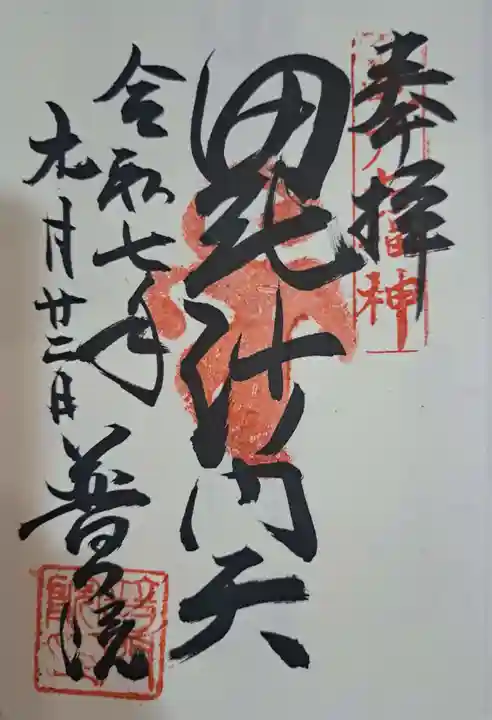 奉拝
福神
毘沙門天
令和七年
九月廿二日
普門院